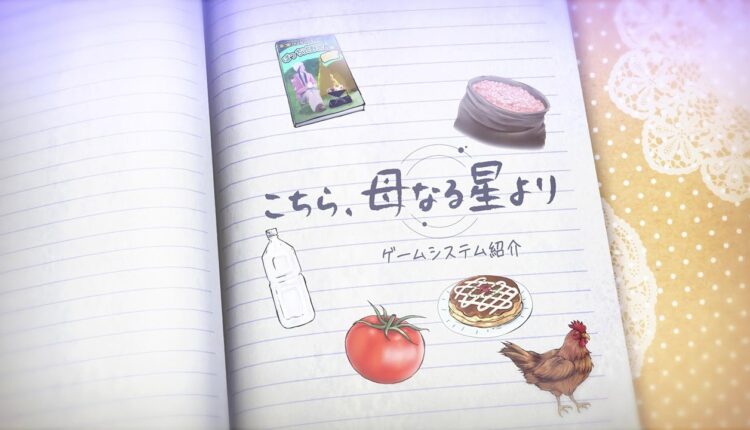 こちら、母なる星より
ゲームシステム紹介